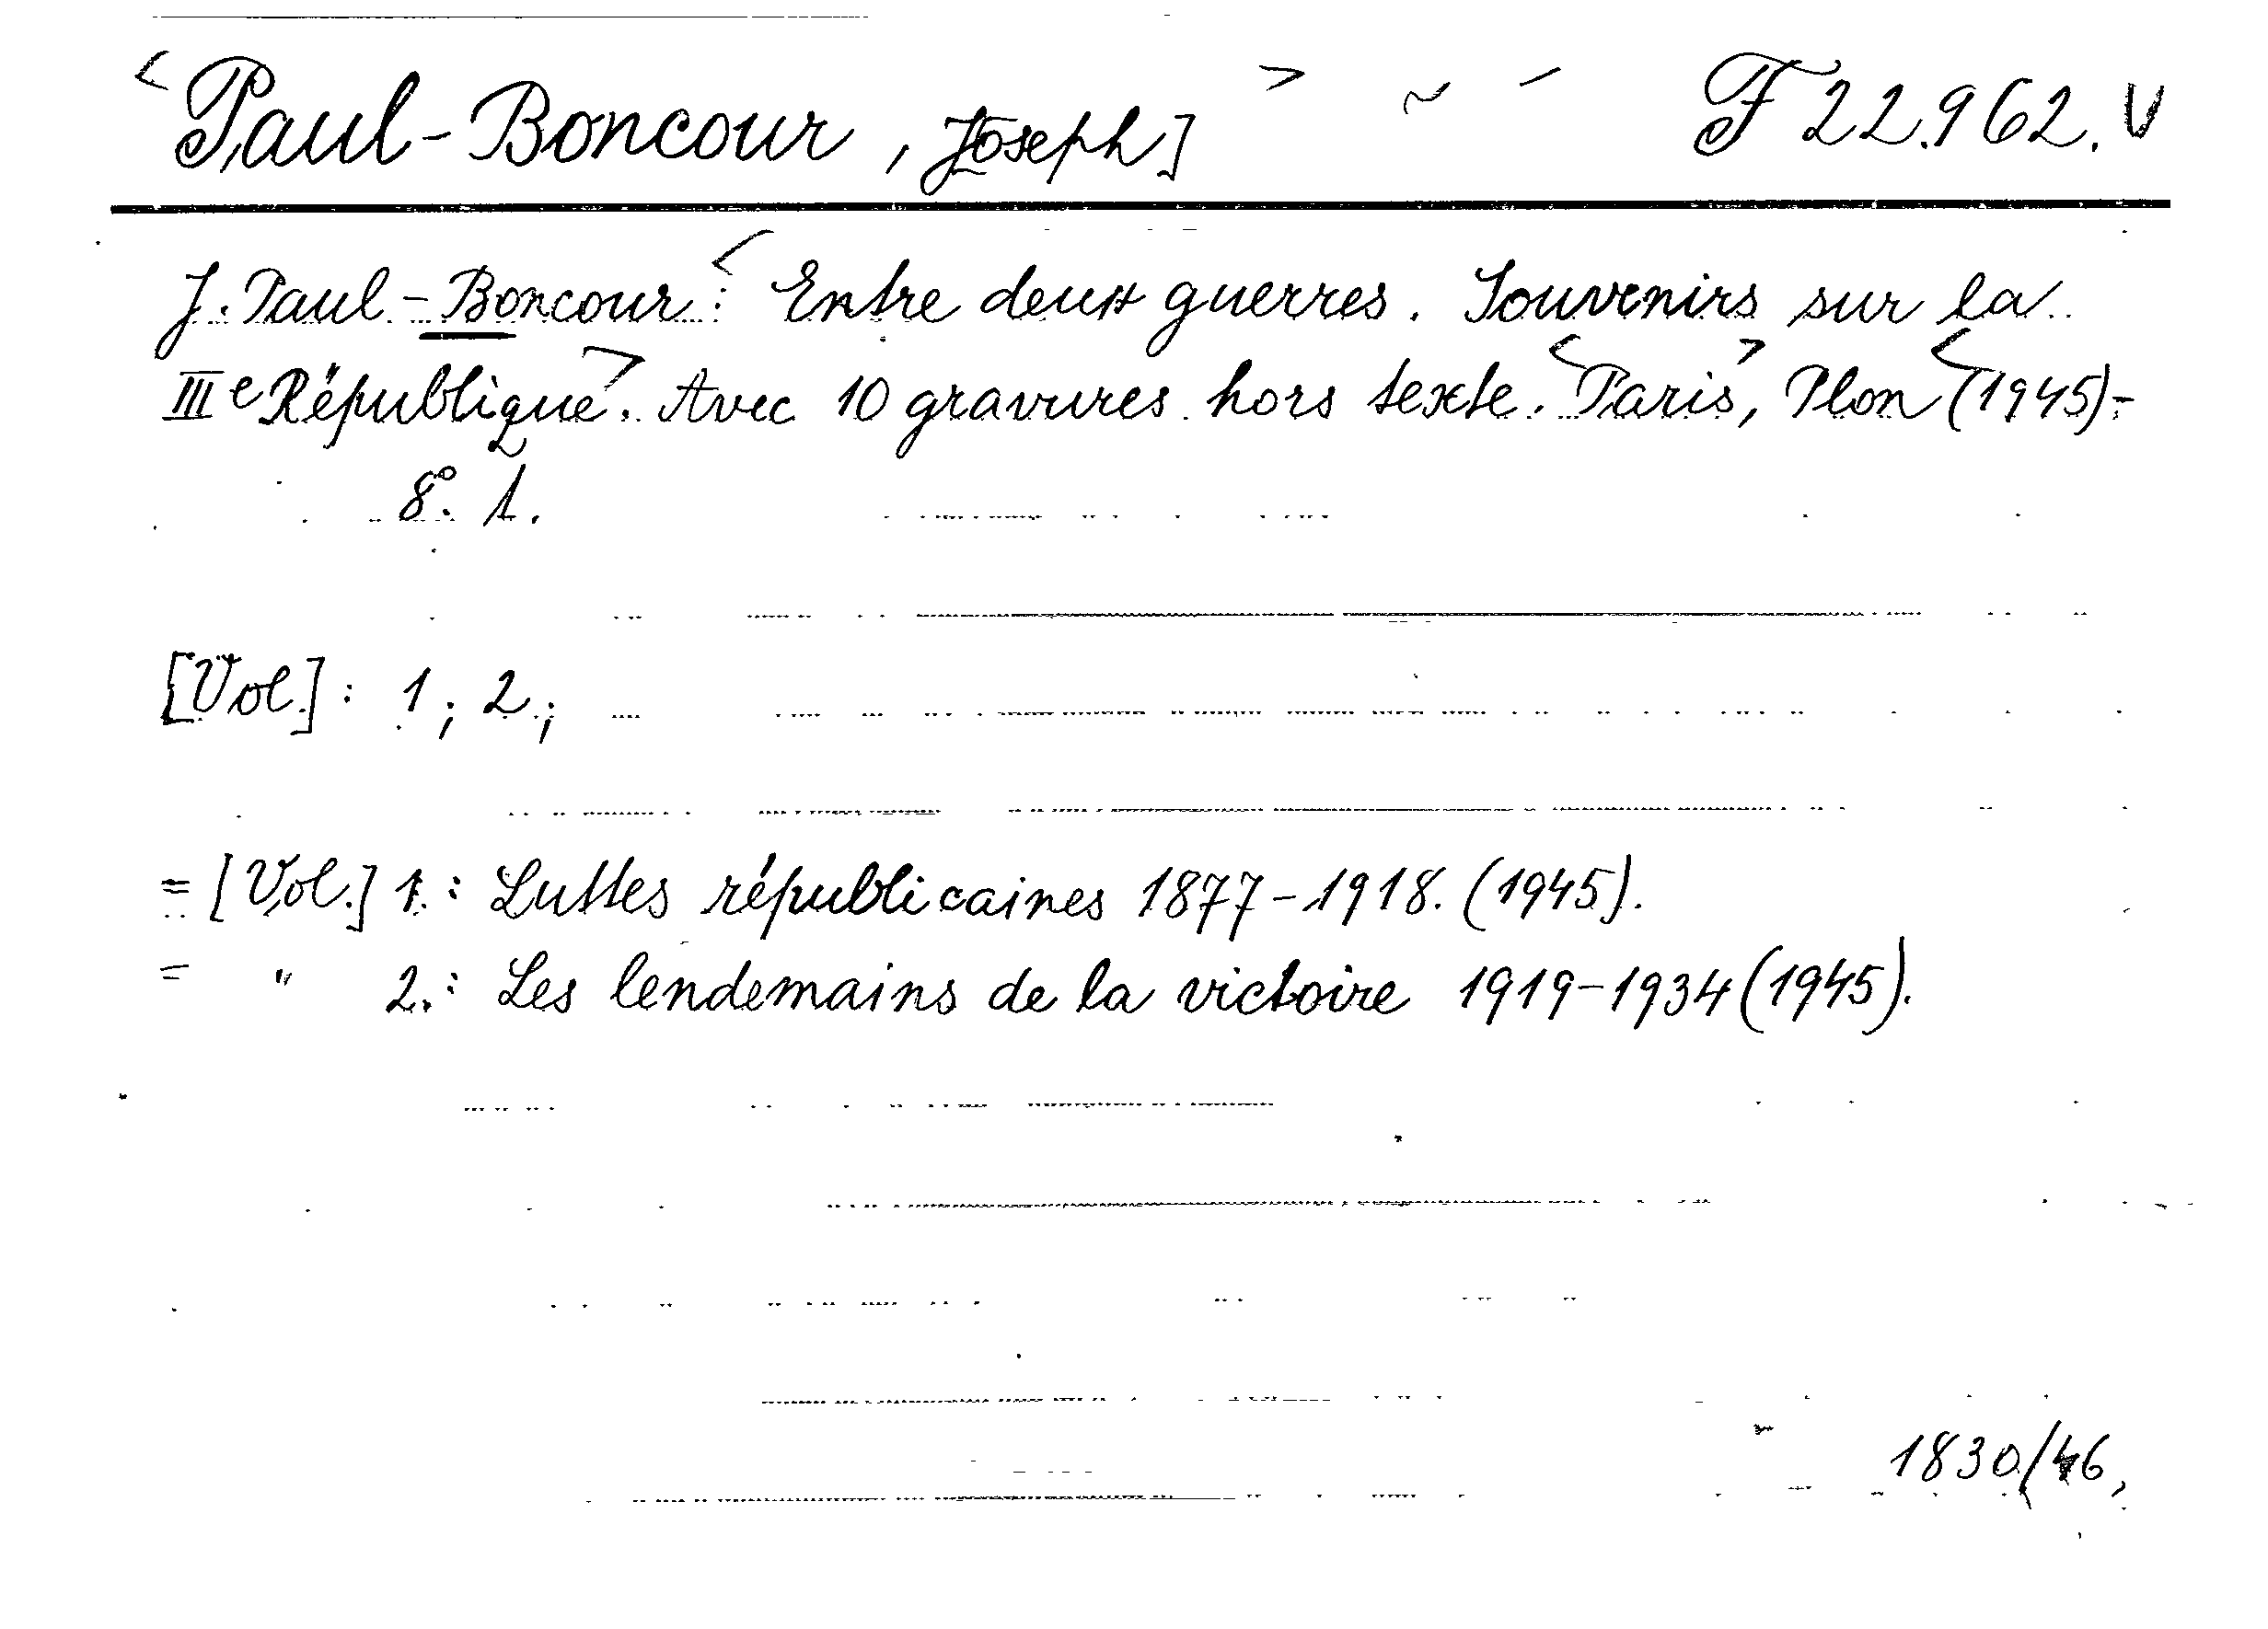 <Paul-Boncour, J[oseph]> F 22.962. V
J. Paul-Boncour: <Entre deux guerres. Souvenirs sur la
IIIe République>. Avec 10 gravures hors texte. <Paris>, Plon <(1945)-
8°. 1.
[Vol.]: 1; 2;
= [Vol.] 1.: Luttes républicaines 1877-1918. (1945).
= " 2.: Les lendemains de la victoire 1919-1934 (1945).
1830/46,